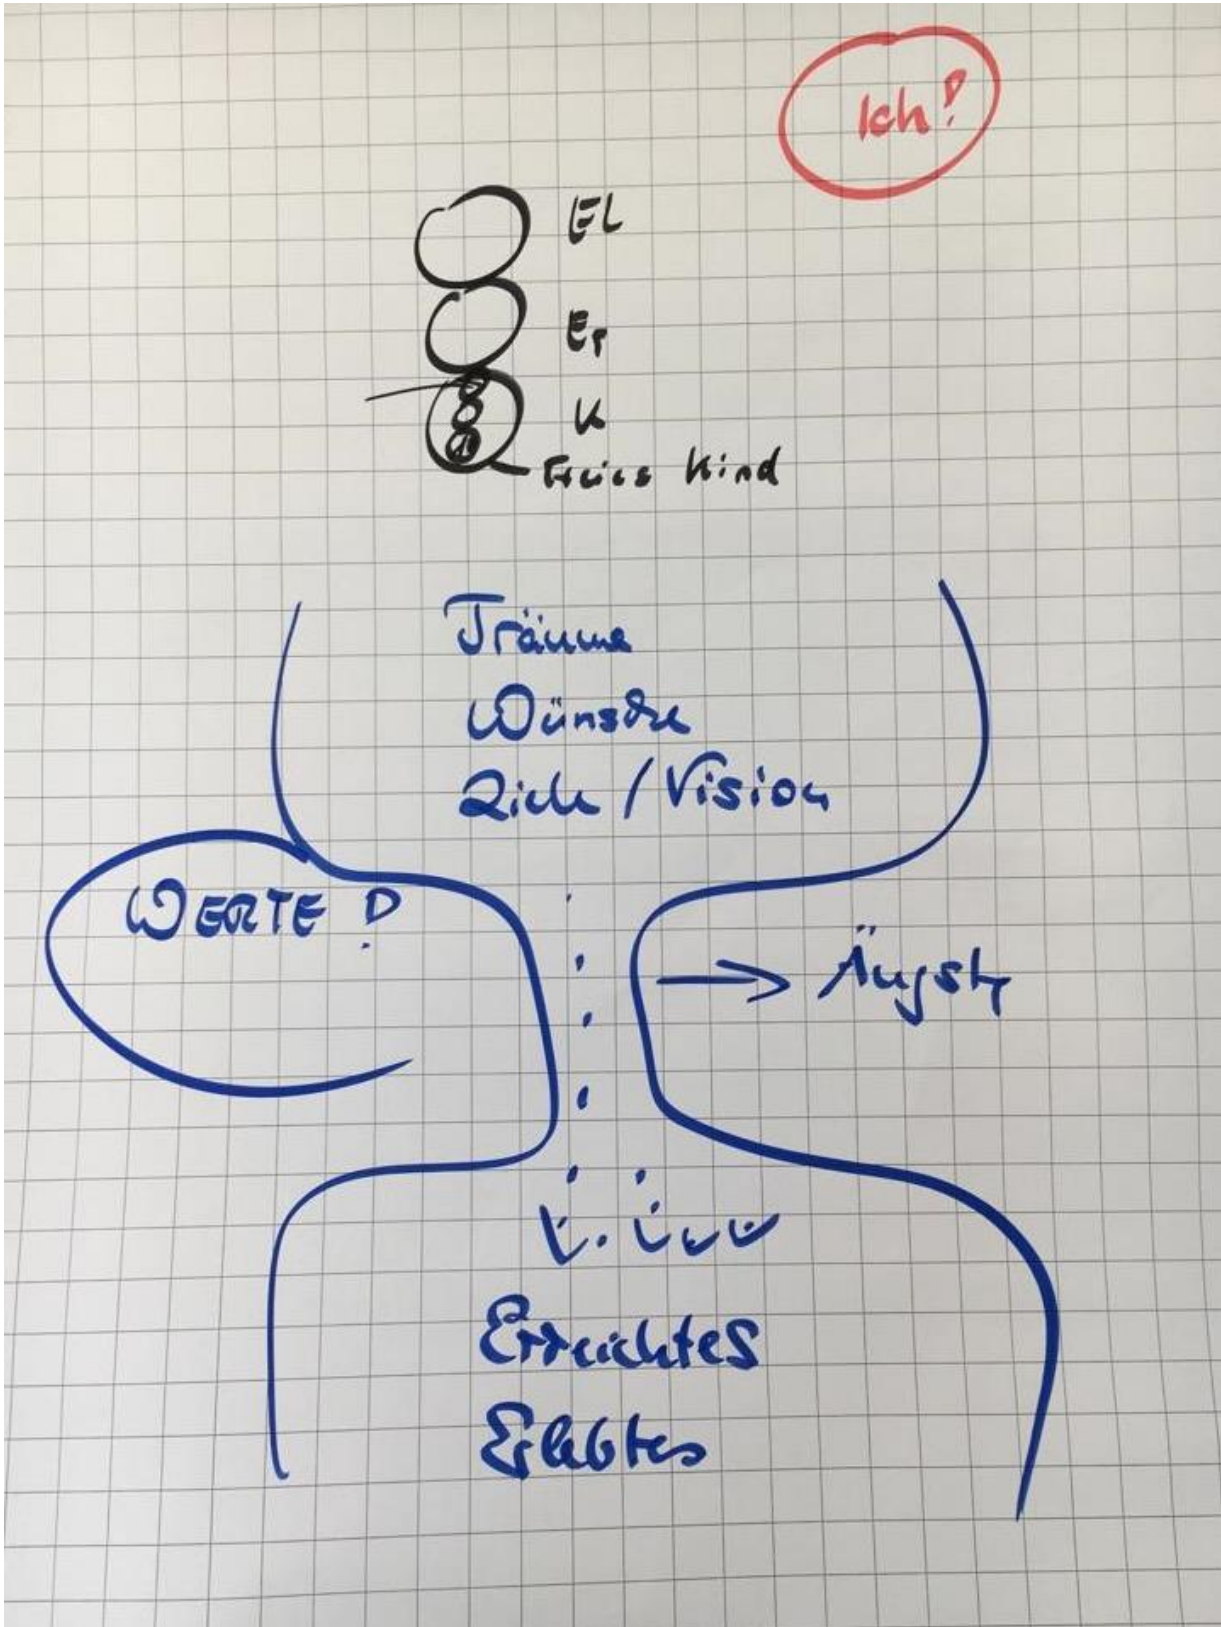 Ich!
EL
Er
K
Freies Kind
Träume
Wünsche
Ziele / Vision
WERTE !
Ängste
Erreichtes
Erlebtes